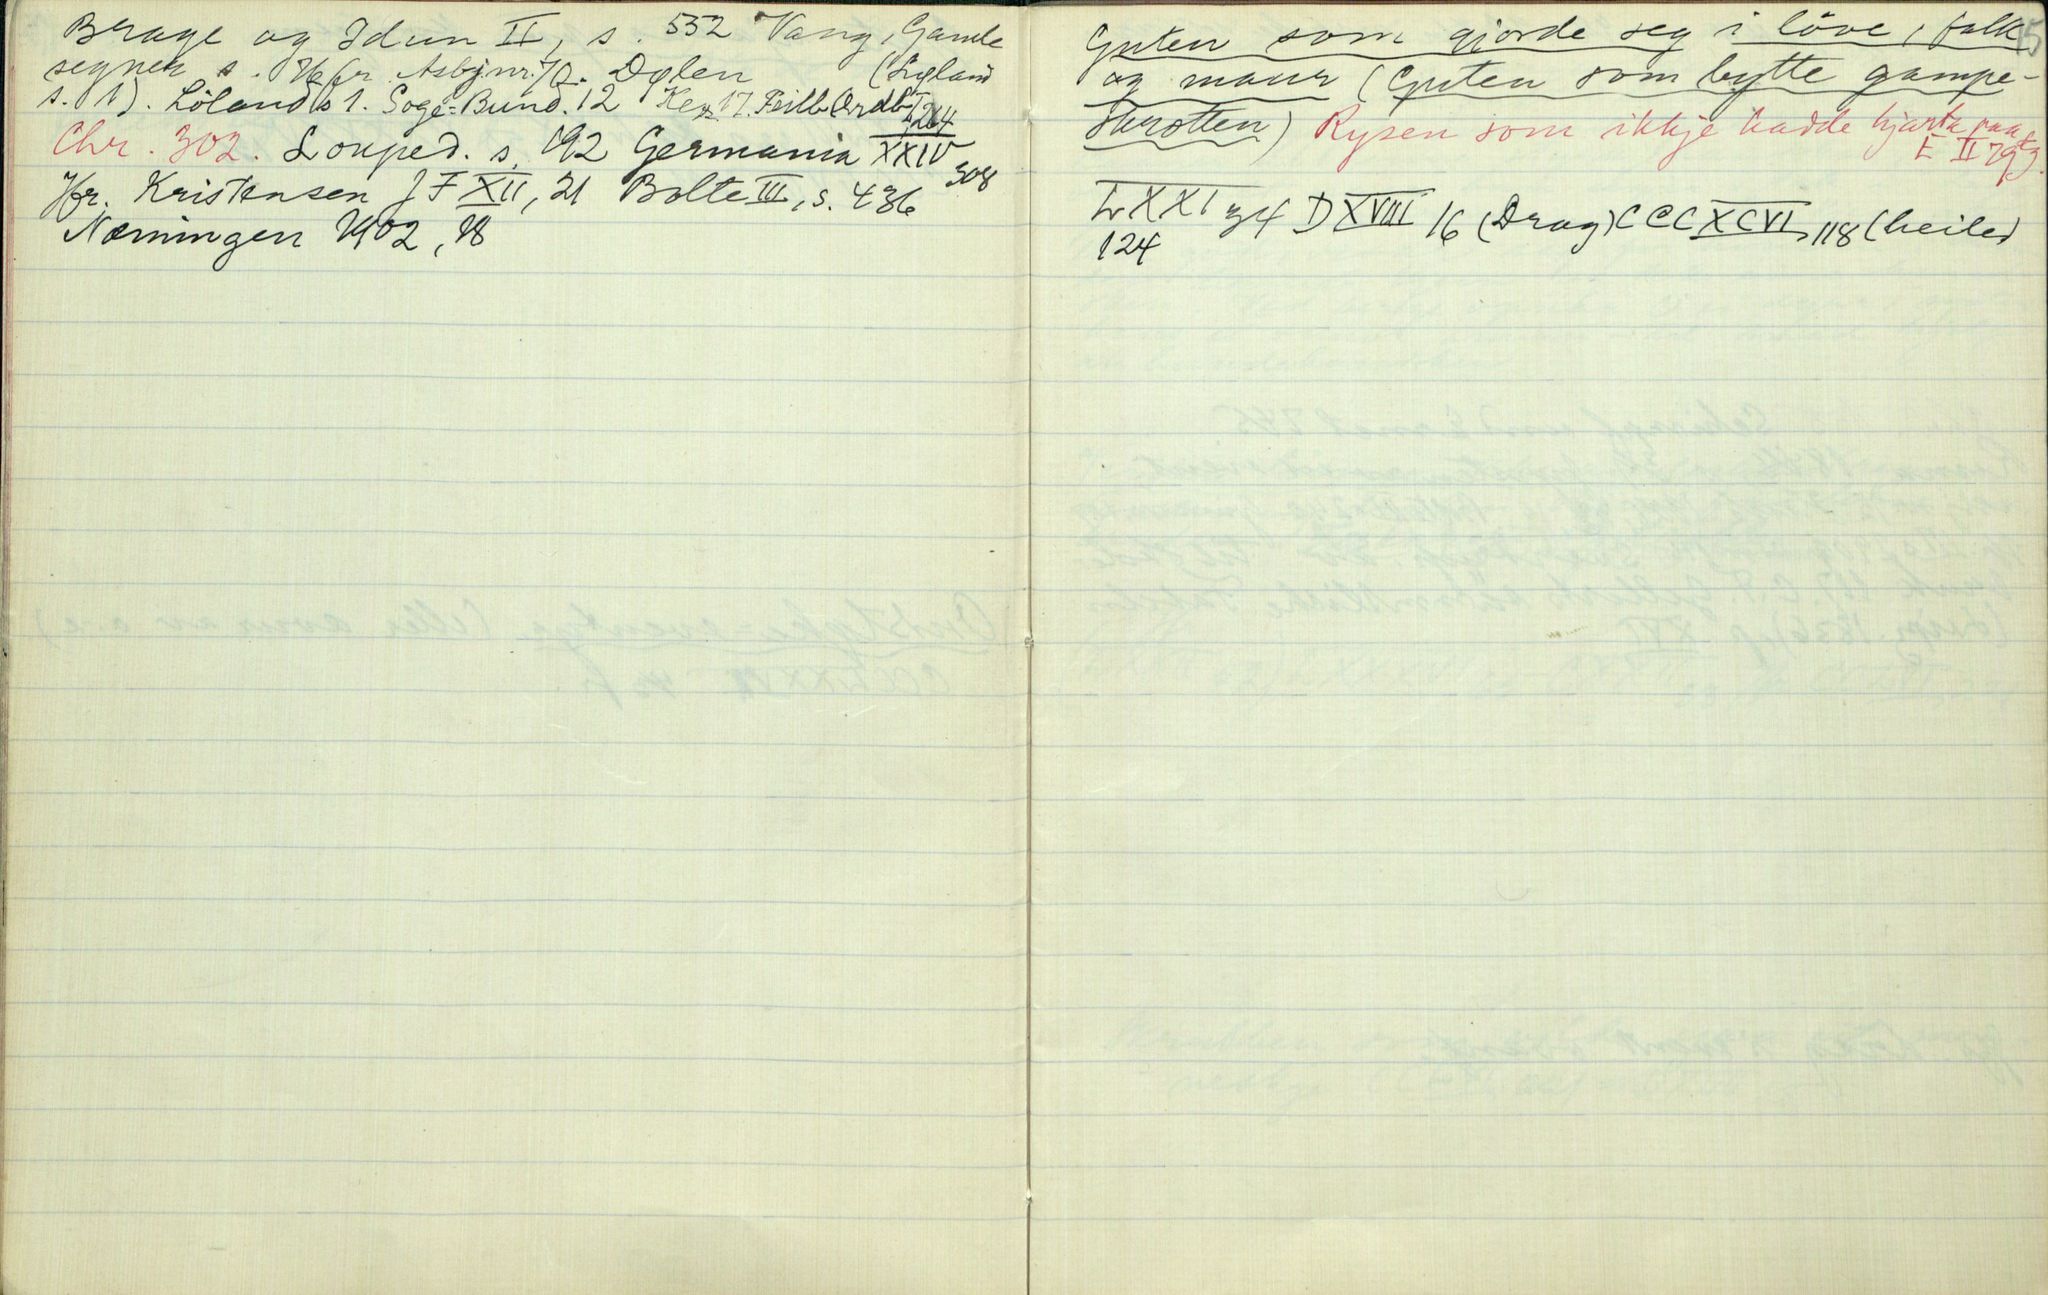 Brage og Idun II, s. 532 Vang, Gamle
segner s. Asbjnr. Dølen
s. 1). Löland s 1. Soge-Bund. 12 Feilb Ordb I, 264
Chr. 302. Louped. s, 192 Germania XXIV 308
Jfr. Kristensen JF XII, 21 Bolte III, s. 436
1902, 18
Guten som gjorde seg i löve, falk
og maur (Guten som bytte gampe-
skrotten) Rysen som ikkje hadde hjarta paa
E II 79
LXXI 34 DXVIII 16 (Drag) CCCXCVI, 118 (heile)
124